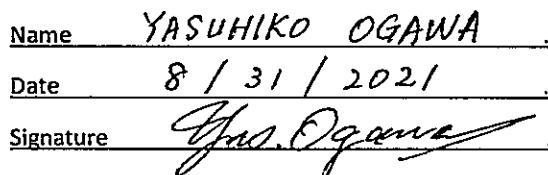 Name YASUHIKO OGAWA .
Date 8 / 31 / 2021 .
Signature Yas. Ogawa .